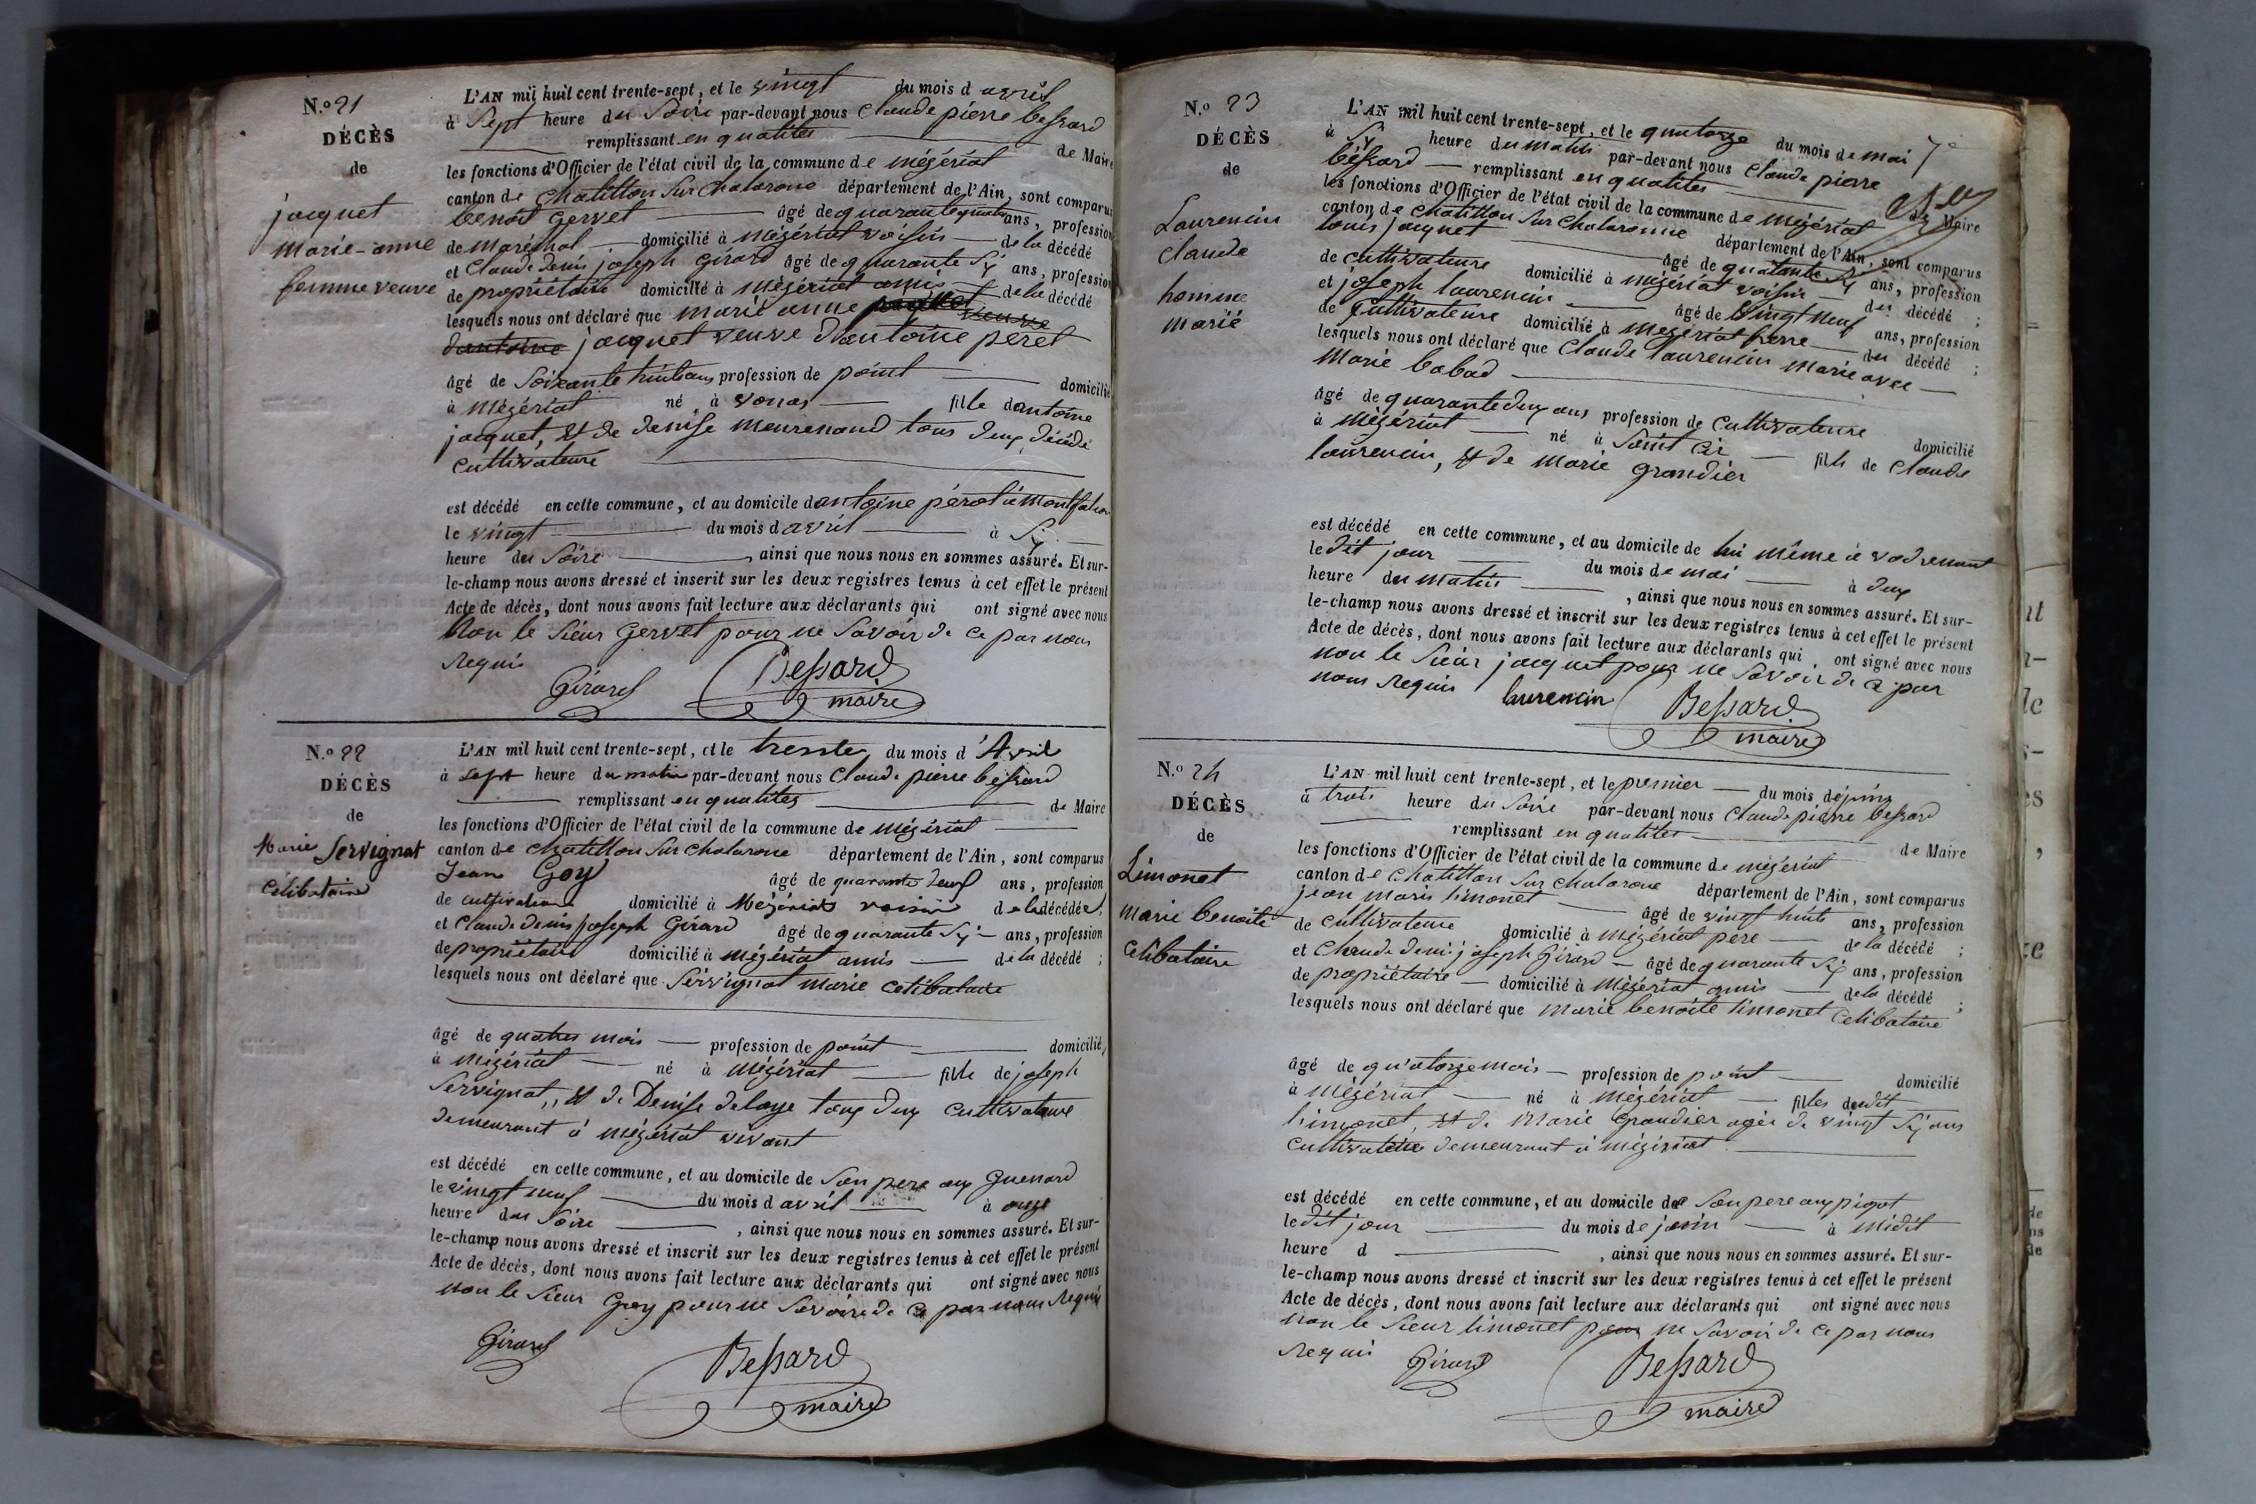 N.o 21
DÉCÈS
de
jacquet
marie-anne
femme veuve
L'AN mil huit cent trente-sept, et le vingt du mois d avril
à Sept heure du Soire par-devant nous Claude pierre bessard
remplissant en qualités de Maire
les fonctions d'Officier de l'état civil de la commune de mézériat
canton de Chatillon sur Chalarone département de l'Ain, sont comparus
benoit Gervet âgé de quarante quatre ans, profession
de maréchal domicilié à mézériat voisin de la décédé
et Claude denis joseph Girard âgé de quarante Six ans, profession
de propriétaire domicilié à mézériat amis de la décédé
lesquels nous ont déclaré que marie anne
jacquet veuve d'antoine péret
âgé de Soixante huit ans profession de point domicilié
à mézériat né à vonas fille dantoine
jacquet, et de denise meurenand tous deux décédé
cultivateure
est décédé en cette commune, et au domicile dantoine pérot à montfalcon
le vingt du mois d avril à Six
heure du Soire, ainsi que nous nous en sommes assuré. Et sur-
le-champ nous avons dressé et inscrit sur les deux registres tenus à cet effet le présent
Acte de décès, dont nous avons fait lecture aux déclarants qui ont signé avec nous
Non le Sieur Gervet pour ne Savoir de ce par nous
Requis
Girard Bessard
maire
N.o 22
DÉCÈS
de
Marie Servignat
Célibataire
L'AN mil huit cent trente-sept, et le trente du mois d'Avril
à sept heure du matin par-devant nous Claude pierre bessard
remplissant en qualités de Maire
les fonctions d'Officier de l'état civil de la commune de mézériat
canton de Chatillon sur Chalarone département de l'Ain, sont comparus
Jean Goy âgé de quarante neuf ans, profession
de cultivateur domicilié à Mézériat voisin de la décédée,
et Claude denis joseph Girard âgé de quarante Six ans, profession
de propriétaire domicilié à mézériat amis de la décédé ;
lesquels nous ont déclaré que Servignat marie celibataire
âgé de quatres mois profession de point domicilié
à mézériat né à Mézériat fille de joseph
Servignat, et de Denise delaye tous deux cultivateure
demeurant à mézériat vivant
est décédé en cette commune, et au domicile de Son pere aux guenard
le vingt neuf du mois d avril à onze
heure du Soire, ainsi que nous nous en sommes assuré. Et sur-
le-champ nous avons dressé et inscrit sur les deux registres tenus à cet effet le présent
Acte de décès, dont nous avons fait lecture aux déclarants qui ont signé avec nous
non le Sieur Goy pour ne Savoire de ce par nous Requis
Girard
Bessard
maire
N.o 23
DÉCÈS
de
Laurencin
claude
homme
marié
L'AN mil huit cent trente-sept, et le quatorze du mois de mai
à Six heure du matin par-devant nous Claude pierre
bessard remplissant en qualités de Maire
les fonctions d'Officier de l'état civil de la commune de mézériat
canton de Chatillon sur Chalaronne département de l'Ain, sont comparus
louis jacquet âgé de quarante Six ans, profession
de cultivateure domicilié à mézériat voisin du décédé ;
et joseph laurencin âgé de Vingt neuf ans, profession
de Cultivateure domicilié à mézériat frere du décédé ;
lesquels nous ont déclaré que Claude laurencin marié avec
Marie babad
âgé de quarante deux ans profession de cultivateure domicilié
à mézériat né à Saint Cir fils de Claude
laurencin, et de marie grandier
est décédé en cette commune, et au domicile de lui même à vodrenant
le dit jour du mois de mai à deux
heure du matin, ainsi que nous nous en sommes assuré. Et sur-
le-champ nous avons dressé et inscrit sur les deux registres tenus à cet effet le présent
Acte de décès, dont nous avons fait lecture aux déclarants qui ont signé avec nous
non le Sieur jacquet pour ne Savoir de ce par
nous Requis laurencin Bessard
maire
N.o 24
DÉCÈS
de
Limonet
marie benoite
célibataire
L'AN mil huit cent trente-sept, et le premier du mois de juin
à trois heure du Soire par-devant nous Claude pierre bessard
remplissant en qualités de Maire
les fonctions d'Officier de l'état civil de la commune de mézériat
canton de Chatillon sur Chalarone département de l'Ain, sont comparus
jean marie limonet âgé de vingt huit ans, profession
de cultivateure domicilié à mézériat pere de la décédé ;
et Claude denis joseph Girard âgé de quarante Six ans, profession
de propriétaire domicilié à mézériat amis de la décédé ;
lesquels nous ont déclaré que marie benoite limonet celibataire
âgé de qu'atorze mois profession de point domicilié
à mézériat né à mézériat filles dudit
limonet, et de marie grandier agée de vingt Six ans
cultivateure demeurant à mézériat
est décédé en cette commune, et au domicile de Son pere aux pigot
le dit jour du mois de juin à midit
heure d, ainsi que nous nous en sommes assuré. Et sur-
le-champ nous avons dressé et inscrit sur les deux registres tenus à cet effet le présent
Acte de décès, dont nous avons fait lecture aux déclarants qui ont signé avec nous
non le Sieur limonet pour ne Savoir de ce par nous
Requis Girard Bessard
maire